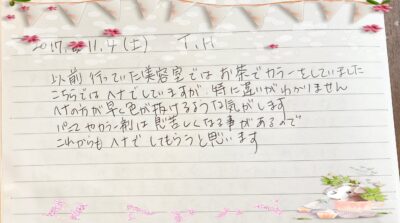 2017. 11.4(土) T.H
以前行っていた美容室ではお茶でカラーをしていました
こちらではヘナでしていますが特に違いがわかりません
ヘナの方が早く色が抜けるような気がします
パーマやカラー剤は息苦しくなる事があるので
これからもヘナでしてもらうと思います